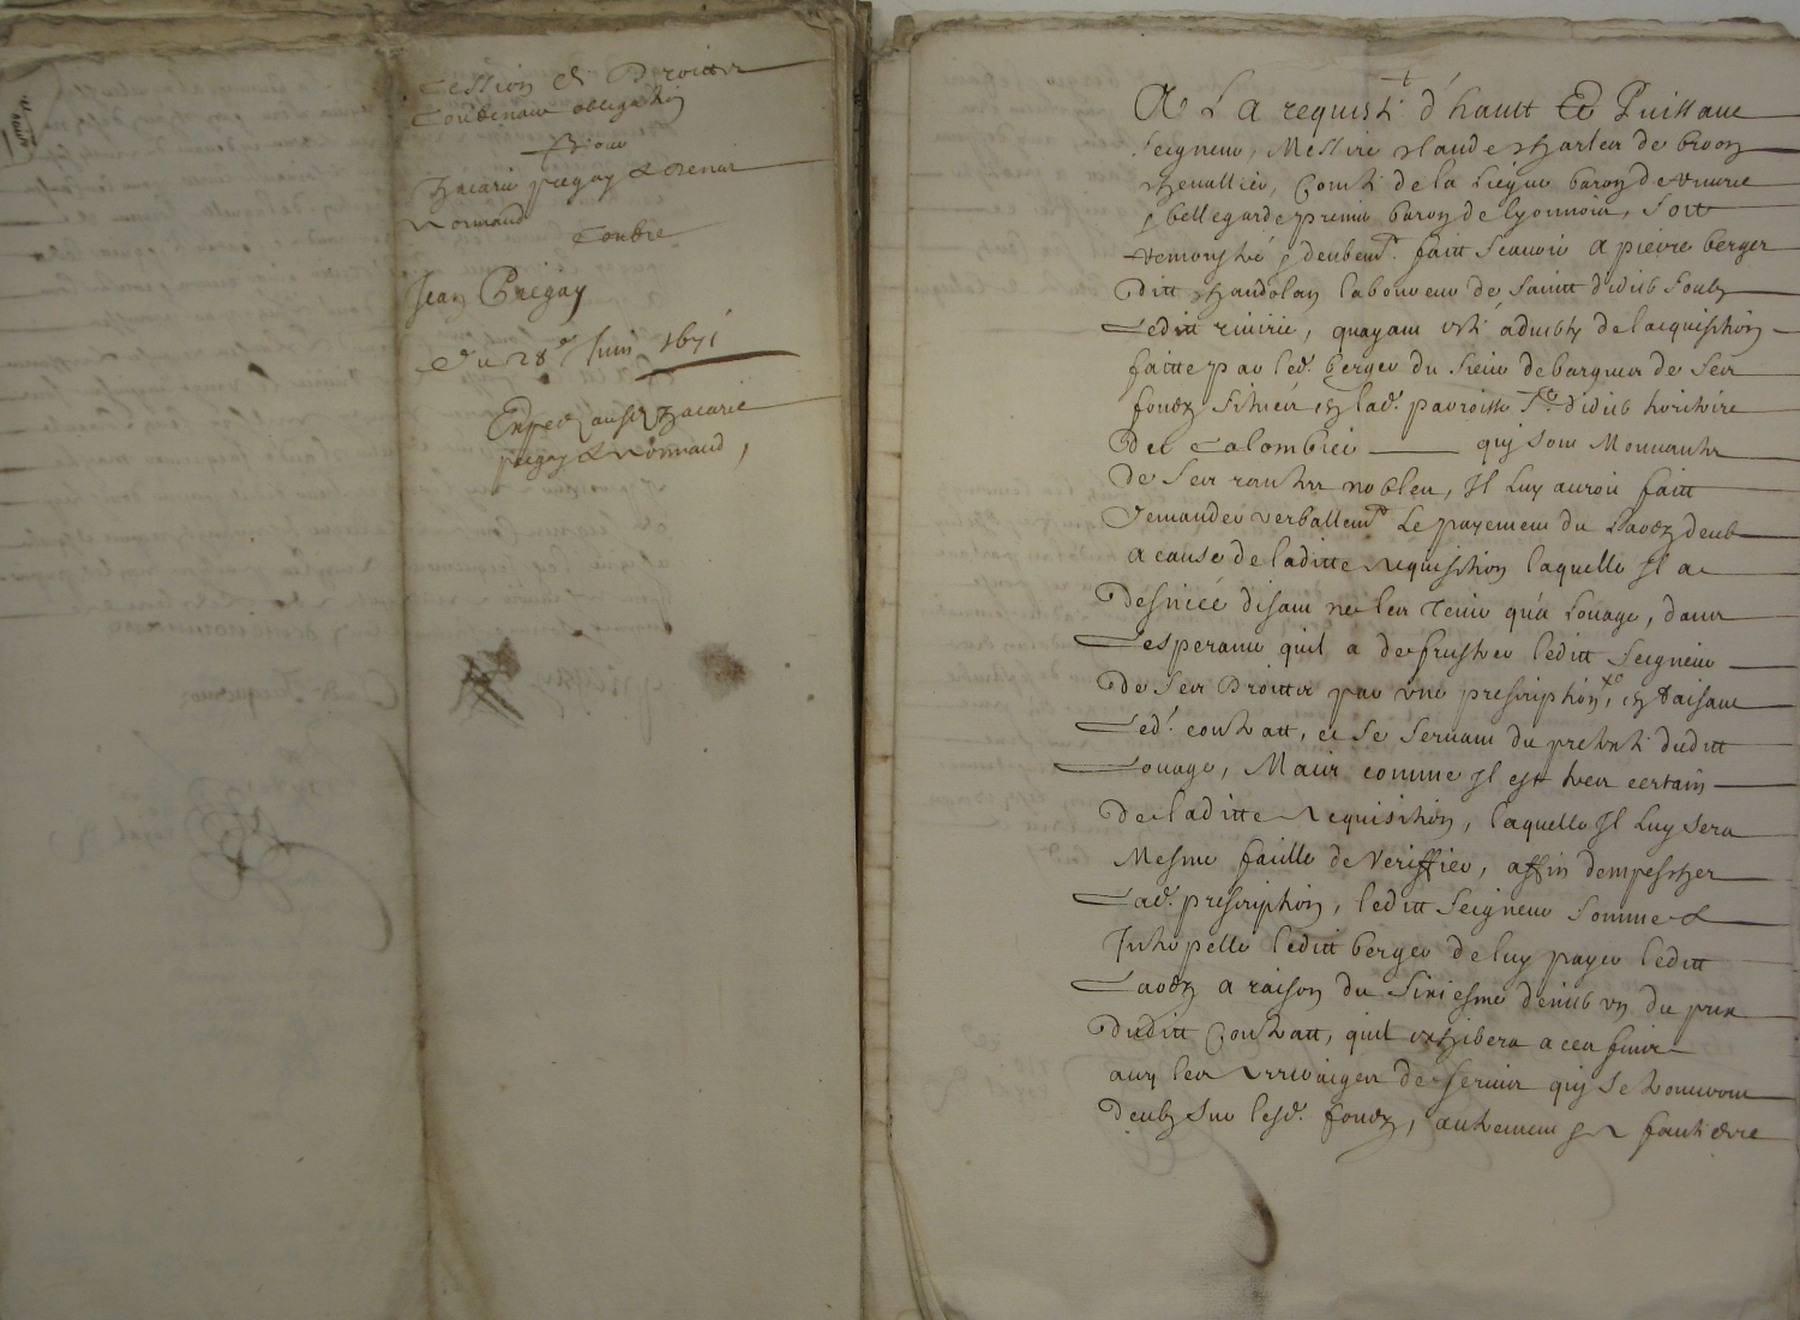 Cession de Droitz
Contenant obligation
Pour
Zacarie pregay & Benoit
Normand
Contre
Jean Pregay
Du 28e Juin 1671
Exped aush Zacarie
pregay & Normand,
A La requeste d'hautt Et Puissant
Seigneur, Messire Claude Charles de broon
Chevallier, Comte de la Liegue baron de
& bellegarde premier baron de lyonnois, Soit
remonstré & deubemt. faitt scavoir a pierre berger
Ditt Chandolan laboureur de Sainct didier soubz
Ledit riuirie, quayant esté aduerty de lacquisition
faitte par led. berger du sieur debargues de ses
fondz situés en lad. parroisse St. didier territoire
Des Colombier quy sont Mouuants
De ses rantes nobles, Il Luy auroit faitt
Demander verballemt. Le payement du Laodz deub
a cause de laditte acquisition laquelle Il a
Desniée disant ne les tenir qu'a Louage, dans
Lesperance quil a de frustrer leditt Seigneur
De ses Droitts par une prescription, en taisant
Led. contratt, et se seruant du pretexte duditt
Louage, Mais comme Il est tres certain
De laditte acquisition, laquelle Il Luy sera
Mesme facille de veriffier, affin dempescher
Lad. prescription, leditt Seigneur somme &
Interpelle leditt berger de luy payer leditt
Laodz a raison du sixiesme denier un du prix
Duditt Contratt, quil exhibera a ces fins
auec les arreraiges de seruis quy se trouueront
Deubz sur lesd. fondz, autrement & a faute de ce